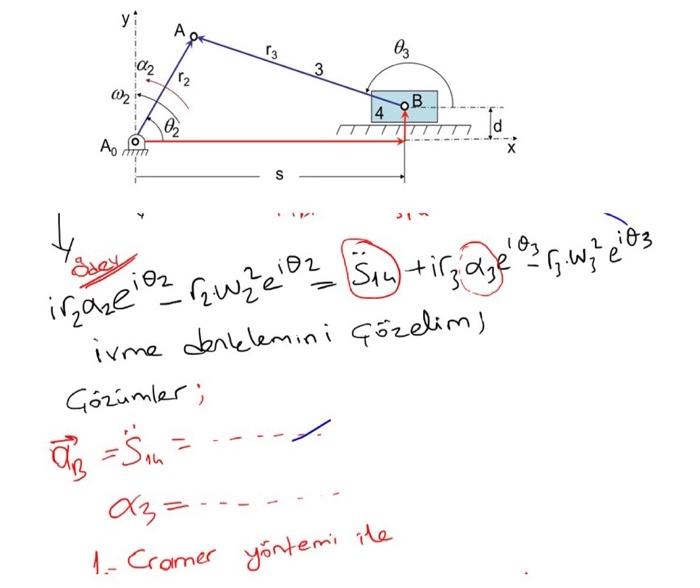 y
A
r₃
θ₃
α₂
r₂
3
ω₂
B
4
θ₂
d
A₀
x
s
Ödev
ir₂α₂e^iθ₂ - r₂.w₂²e^iθ₂ = S̈₁₄ + ir₃α₃e^iθ₃ - r₃.w₃²e^iθ₃
ivme denklemini çözelim;
Çözümler;
a⃗_B = S̈₁₄ = - - - - - -
α₃ = - - - - - - -
1.- Cramer yöntemi ile